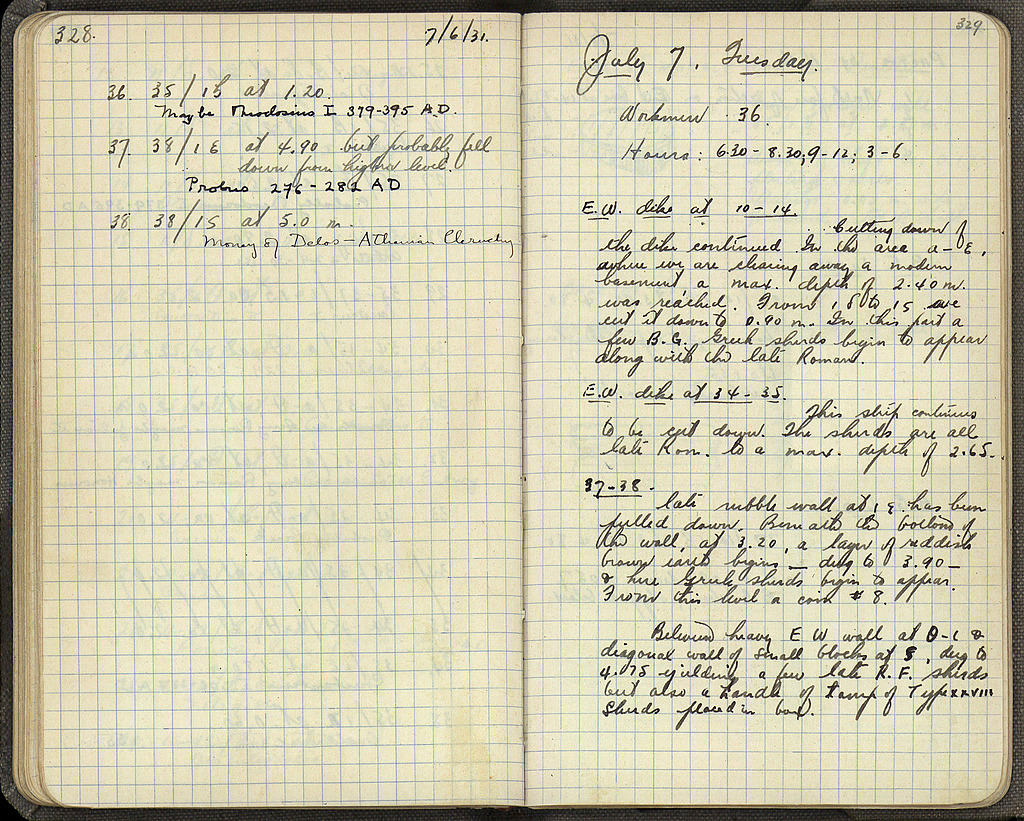 328.
7/6/31.
36. 35/ at 1.20.
May be Theodosius I 379-395 A.D.
37. 38/ at 4.90 but probably fell
down from higher level.
Probus 276-282 AD
38. 38/ at 5.0 m.
Money of Delos - Athenian Cleruchy
329
July 7, Tuesday.
Workmen 36.
Hours: 6.30-8.30; 9-12; 3-6.
E.W. dike at 10-14.
Cutting down of
the dike continued. In the area
where we are clearing away a modern
basement a max. depth of 2.40 m.
was reached. From to we
cut it down to 0.90 m. In this part a
few B.G. Greek sherds begin to appear
along with the late Roman.
E.W. dike at 34-35.
This strip continues
to be cut down. The sherds are all
late Rom. to a max. depth of 2.65.
37-38.
Late rubble wall at has been
pulled down. Beneath the bottom of
the wall, at 3.20, a layer of reddish
brown earth begins — dug to 3.90 —
& here Greek sherds begin to appear.
From this level a coin # 8.
Between heavy E W wall at &
diagonal wall of small blocks at , dug to
4.75 yielding a few late R.F. sherds
but also a handle of Lamp of Type XXVIII
Sherds placed in box.